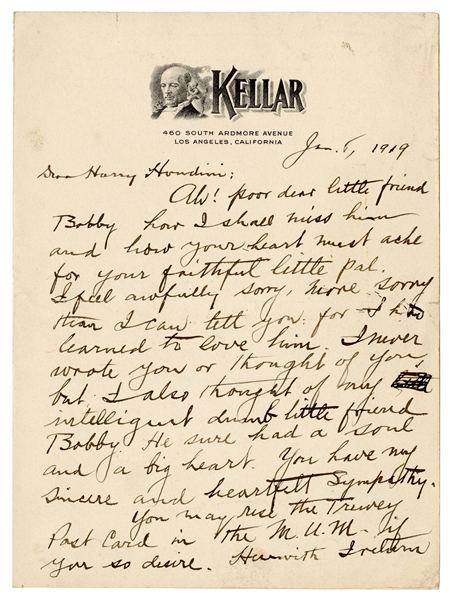 KELLAR
460 SOUTH ARDMORE AVENUE
LOS ANGELES, CALIFORNIA
Jan. 8, 1919
Dear Harry Houdini:
Ah! poor dear little friend
Bobby how I shall miss him
and how your heart must ache
for your faithful little pal.
I feel awfully sorry, more sorry
than I can tell you for I had
learned to love him. I never
wrote you or thought of you,
but I also thought of my
intelligent dumb little friend
Bobby. He sure had a soul
and a big heart. You have my
sincere and heartfelt Sympathy.
You may use the Trewey
Post Card in the M.U.M. if
you so desire. Herewith I return